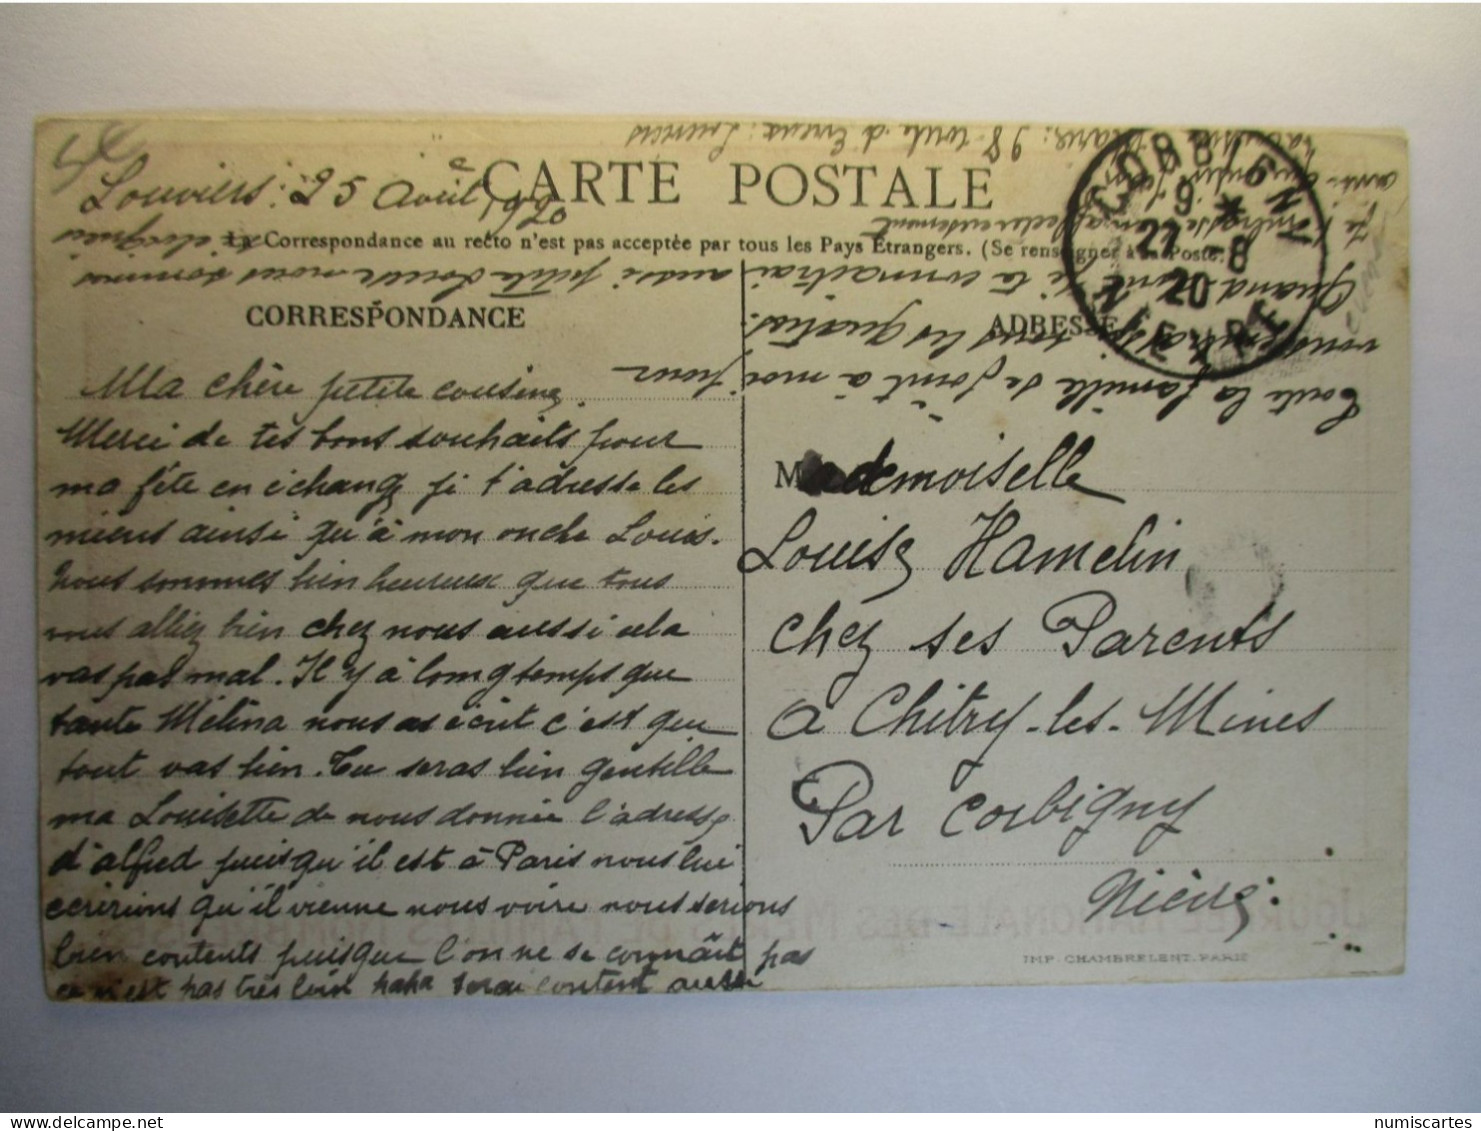 Louviers : 25 Août 1920
CARTE POSTALE
La Correspondance au recto n'est pas acceptée par tous les Pays Etrangers. (Se renseigner à la Poste.)
CORRESPONDANCE
Ma chère petite cousine,
Merci de tes bons souhaits pour
ma fête en échange je t'adresse les
miens ainsi qu'à mon oncle Louis.
Nous sommes bien heureux que tous
vous alliez bien chez nous aussi cela
vas pas mal. Il y à longtemps que
tante Mélina nous as écrit c'est que
tout vas bien. Tu seras bien gentille
ma Louisette de nous donnée l'adresse
d'alfred puisqu'il est à Paris nous lui
ecririons qu'il vienne nous voire nous serions
bien contents puisque l'on ne se connaît pas
ce n'est pas très loin papa serai content aussi
aussi petite Louise nous sommes
éloignés
ADRESSE
Mademoiselle
Louise Hamelin
chez ses Parents
à Chitry-les-Mines
Par Corbigny
Nièvre
IMP. CHAMBRELENT. PARIS
CORBIGNY
9 *
27 -8
20
NIEVRE
toute la famille se joint à moi pour
vous embrasser tous les quatres.
Quand je te connaitrai
Je t'embrasse affectueusement
98 route d'Evreux : Louviers
JOURNÉE NATIONALE DES MÈRES DE FAMILLES NOMBREUSES
numiscartes